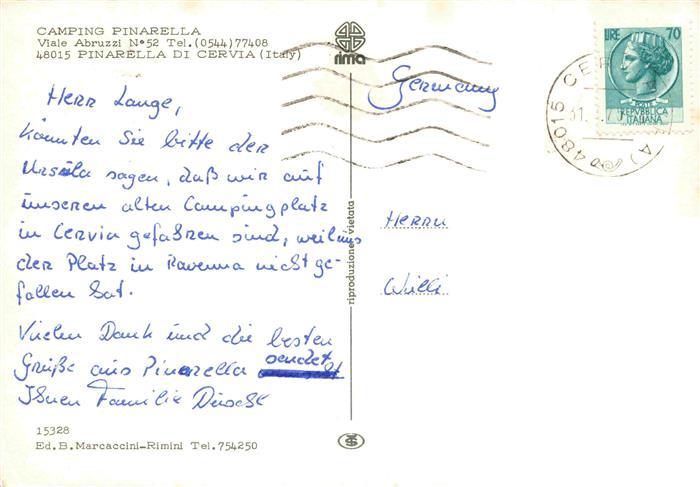 CAMPING PINARELLA
Viale Abruzzi N°52 Tel.(0544)77408
48015 PINARELLA DI CERVIA (Italy)
Herr Lange,
könnten Sie bitte der
Ursula sagen, daß wir auf
unseren alten Campingplatz
in Cervia gefahren sind, weil uns
der Platz in Ravenna nicht ge-
fallen hat.
Vielen Dank und die besten
Grüße aus Pinarella sendet
Ihnen Familie
15328
Ed.B. Marcaccini-Rimini Tel. 754250
rima
riproduzione vietata
Germany
Herrn
Willi
LIRE 70
REPVBBLICA
ITALIANA
48015 CER